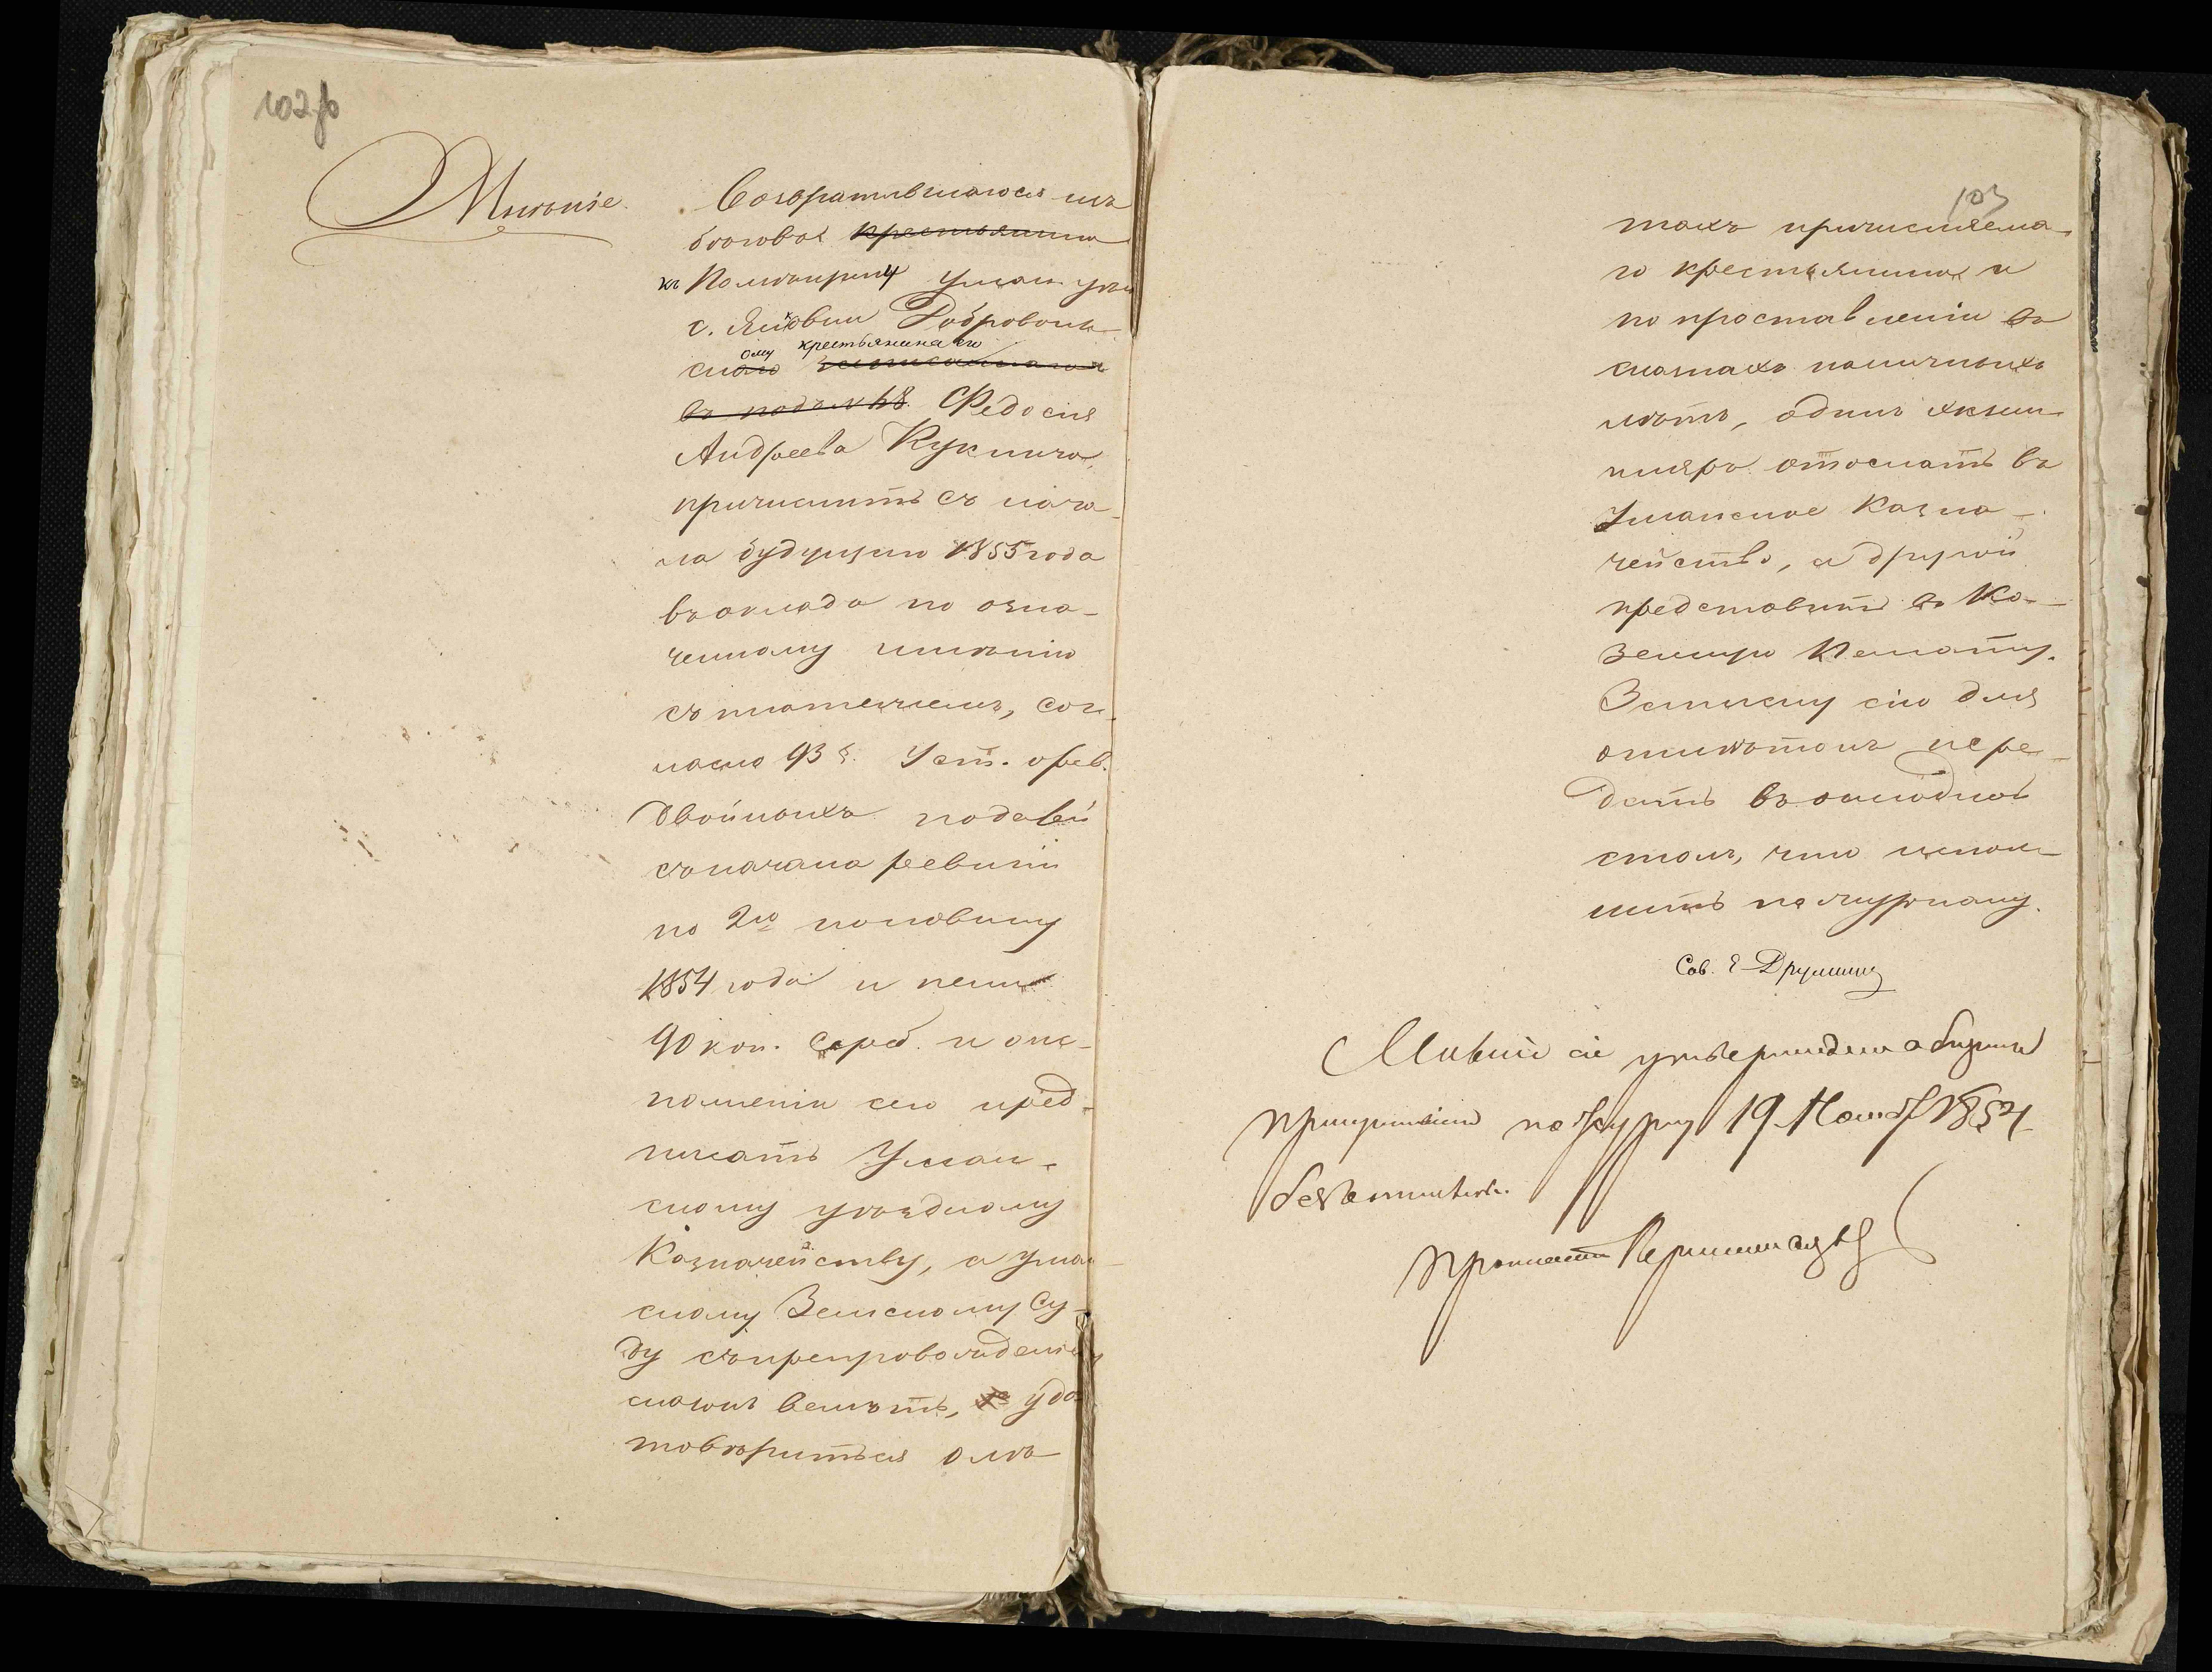 102 об
Мнѣніе.
Возвратившагося изъ
бѣговъ крестьянина
къ Помѣщику Уман. уѣз.
с. Янковки Добровол-
скаго ому крестьянина его
въ подъ № 68. Федосія
Андреева Куклича,
причислить съ нача-
ла будущаго 1855 года
въ окладъ по озна-
ченному имѣнію
съ платежемъ, сог-
ласно 93 §. Уст. о рев.
двойныхъ податей
съ начала ревизіи
по 2ю половину
1854 года и пени
90 коп. сереб. и о ис-
полненіи сего пред-
писать Уман-
скому уѣздному
Казначейству, а Уман-
скому Земскому Су-
ду съ препровожденіемъ
сказокъ велѣть, удо-
товѣриться о лѣ-
103
тахъ причисляема-
го крестьянина и
по проставленіи въ
сказкахъ наличныхъ
лѣтъ, одинъ экзем-
пляръ отослать въ
Уманское Казна-
чейство, а другой
представить въ Ка-
зенную Палату.
Записку сію для
отмѣтокъ пере-
дать въ окладной
столъ, что испол-
нить по журналу.
Сов.
Мнѣніе сіе утверждено общимъ
присутствіемъ по журну 19 Нояб 1854